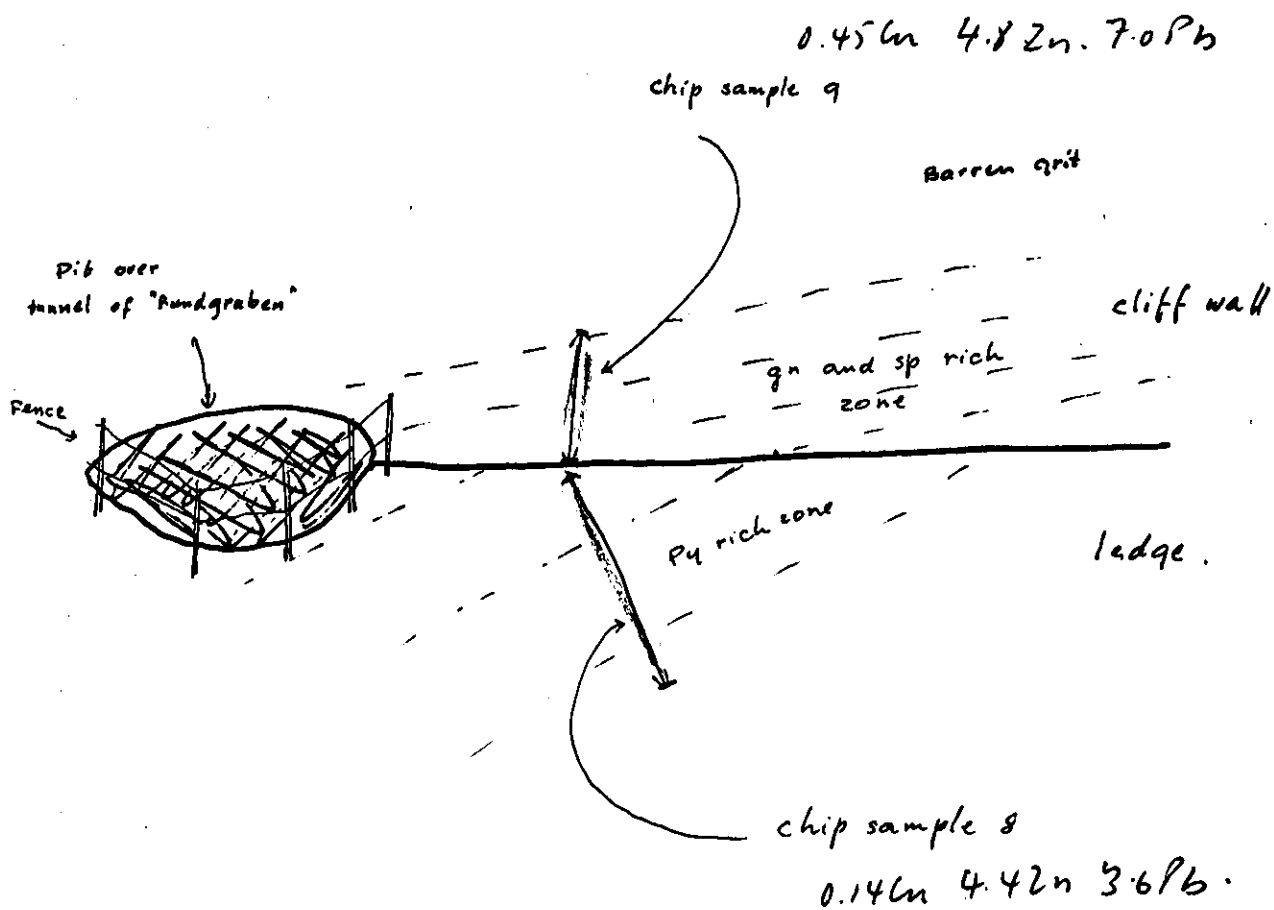 0.45 Cu 4.8 Zn. 7.0 Pb
chip sample 9
Barren grit
Pit over
tunnel of "Rundgraben"
Fence
cliff wall
gn and sp rich
zone
Py rich zone
ledge.
chip sample 8
0.14 Cu 4.4 Zn 3.6 Pb.